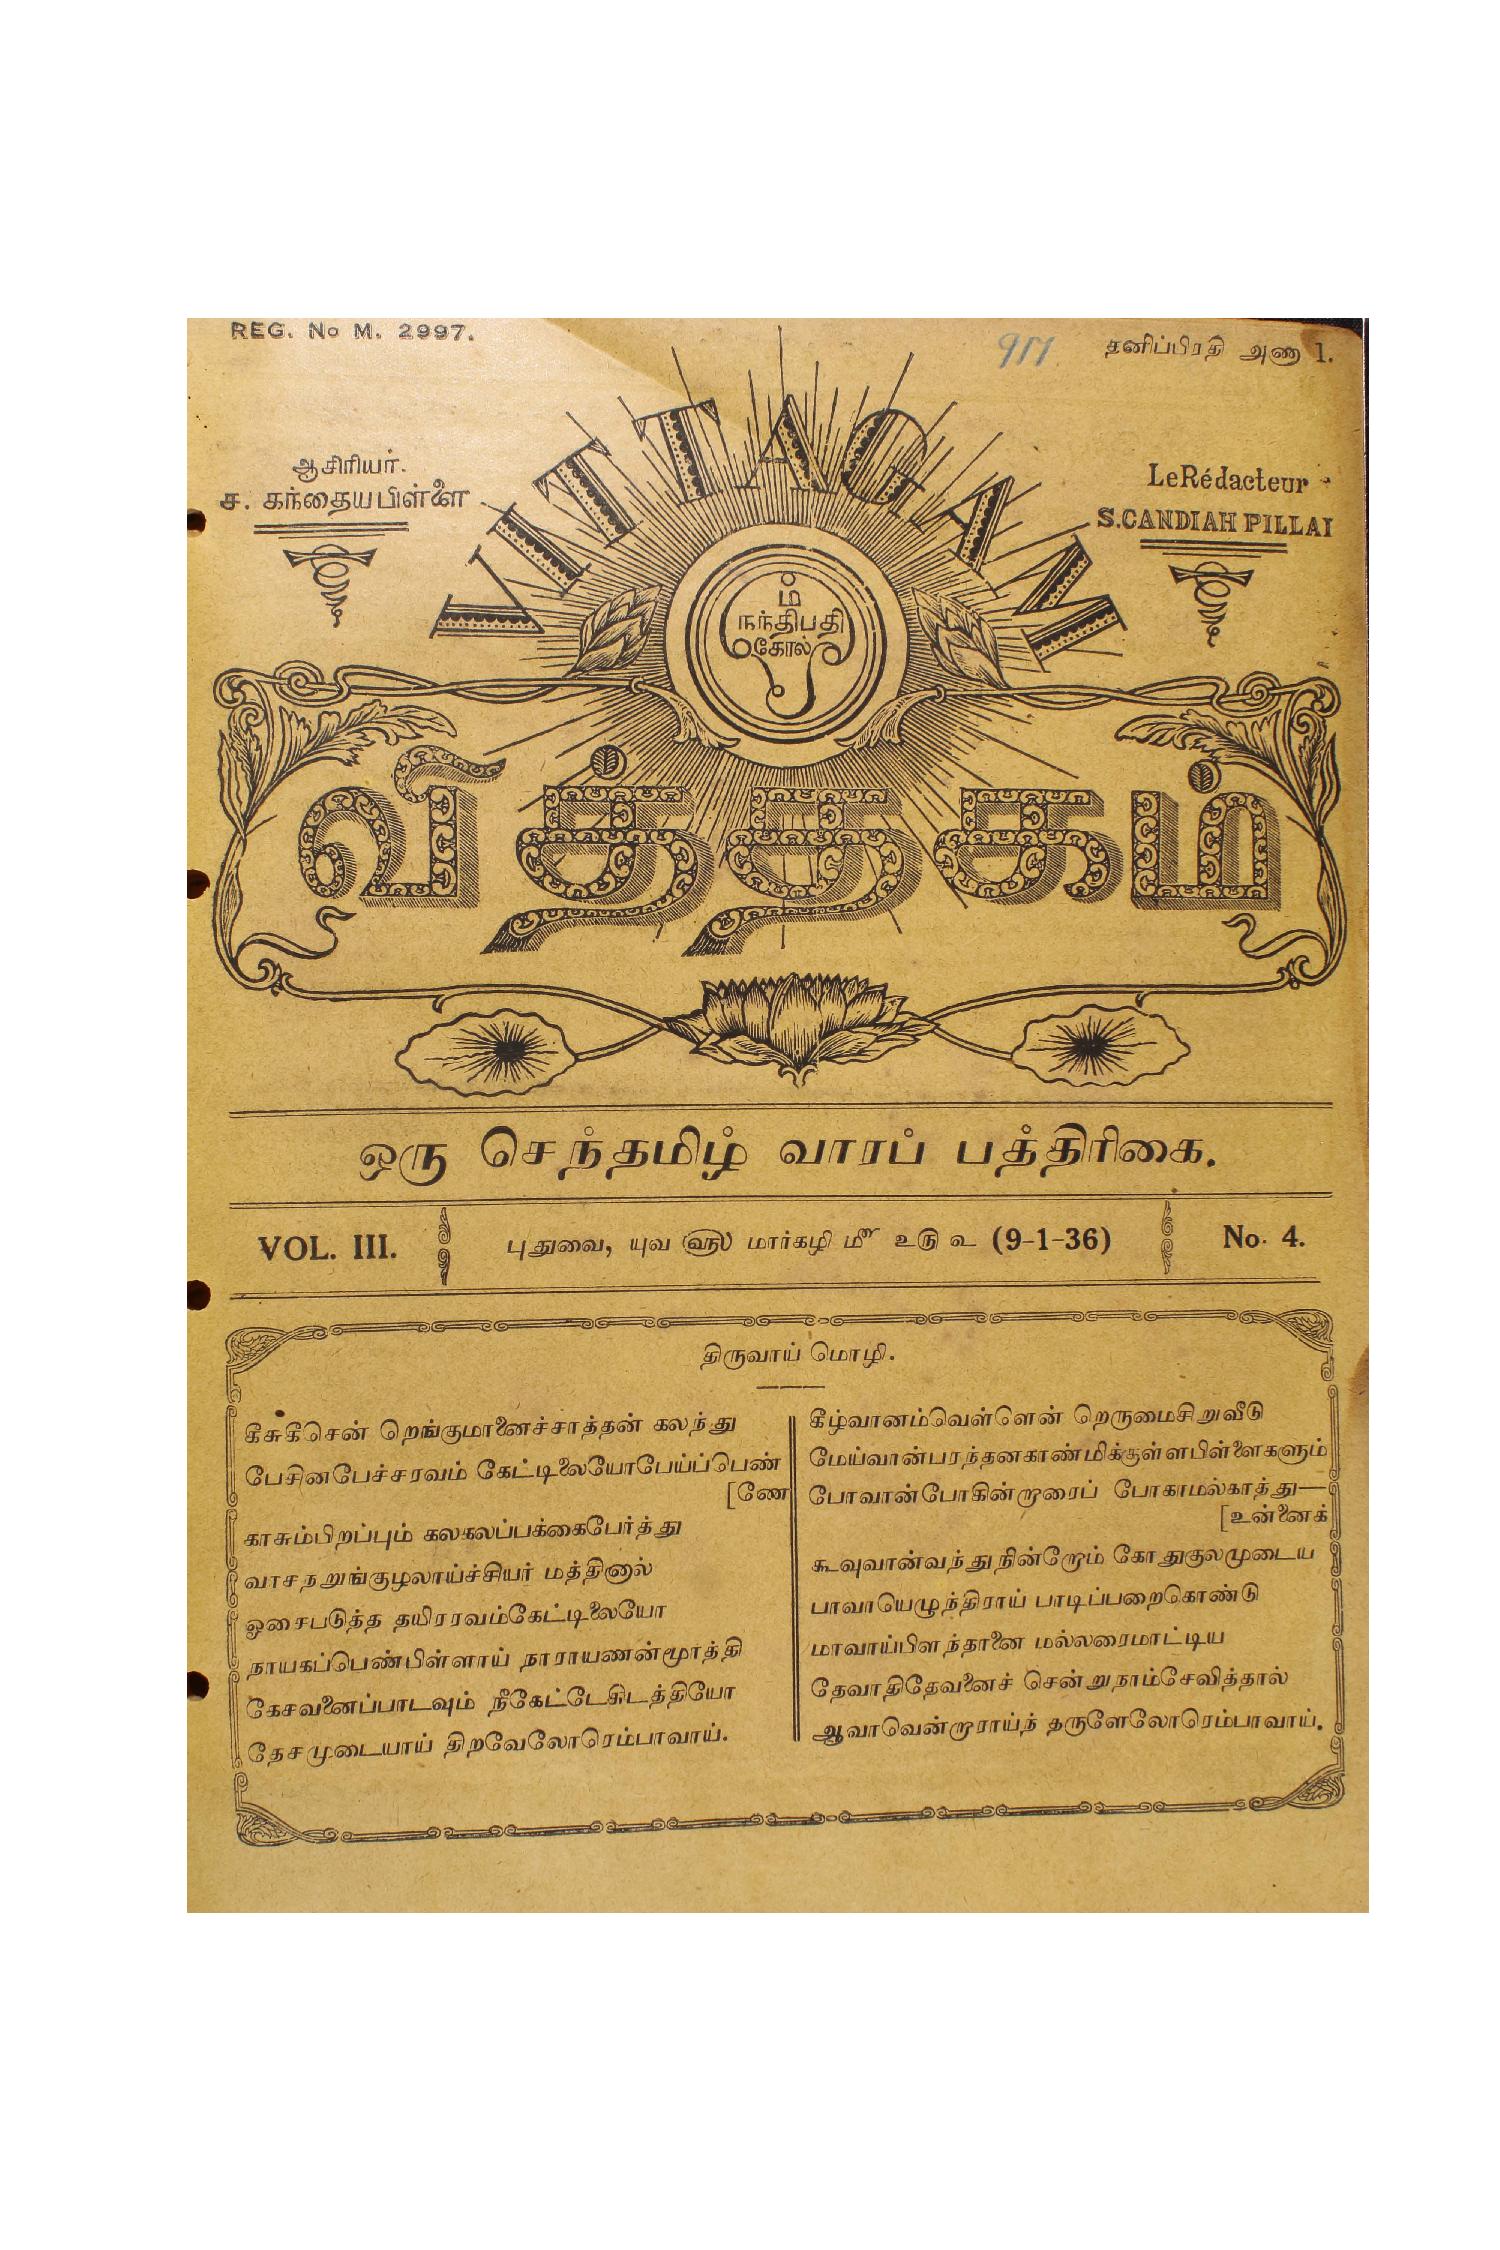 REG. No M. 2997.
தனிப்பிரதி அணா 1.
ஆசிரியர்.
ச. கந்தையபிள்ளை
LeRédacteur
S.CANDIAH PILLAI
VITTAGAM
நந்திபதி
கோல்
வித்தகம்
ஒரு செந்தமிழ் வாரப் பத்திரிகை.
VOL. III.
புதுவை, யுவ ௵ மார்கழி ௴ உரு உ (9-1-36)
No. 4.
திருவாய் மொழி.
கீசுகீசென் றெங்குமானைச்சாத்தன் கலந்து
பேசினபேச்சரவம் கேட்டிலையோபேய்ப்பெண்
[ணே
காசும்பிறப்பும் கலகலப்பக்கைபேர்த்து
வாசநறுங்குழலாய்ச்சியர் மத்தினால்
ஓசைபடுத்த தயிரரவம்கேட்டிலையோ
நாயகப்பெண்பிள்ளாய் நாராயணன்மூர்த்தி
கேசவனைப்பாடவும் நீகேட்டேகிடத்தியோ
தேசமுடையாய் திறவேலோரெம்பாவாய்.
கீழ்வானம்வெள்ளென் றெருமைசிறுவீடு
மேய்வான்பரந்தனகாண்மிக்குள்ளபிள்ளைகளும்
போவான்போகின்றாரைப் போகாமல்காத்து—
[உன்னைக்
கூவுவான்வந்துநின்றோம் கோதுகுலமுடைய
பாவாயெழுந்திராய் பாடிப்பறைகொண்டு
மாவாய்பிளந்தானை மல்லரைமாட்டிய
தேவாதிதேவனைச் சென்றுநாம்சேவித்தால்
ஆவாவென்றாராய்ந் தருளேலோரெம்பாவாய்.